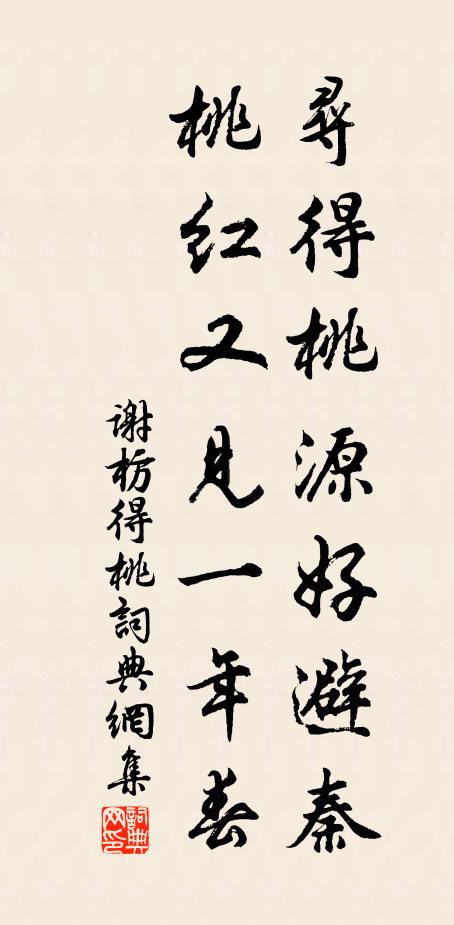 尋得桃源好避秦
桃红又見一年春
谢枋得桃詞典網集
詞典网印